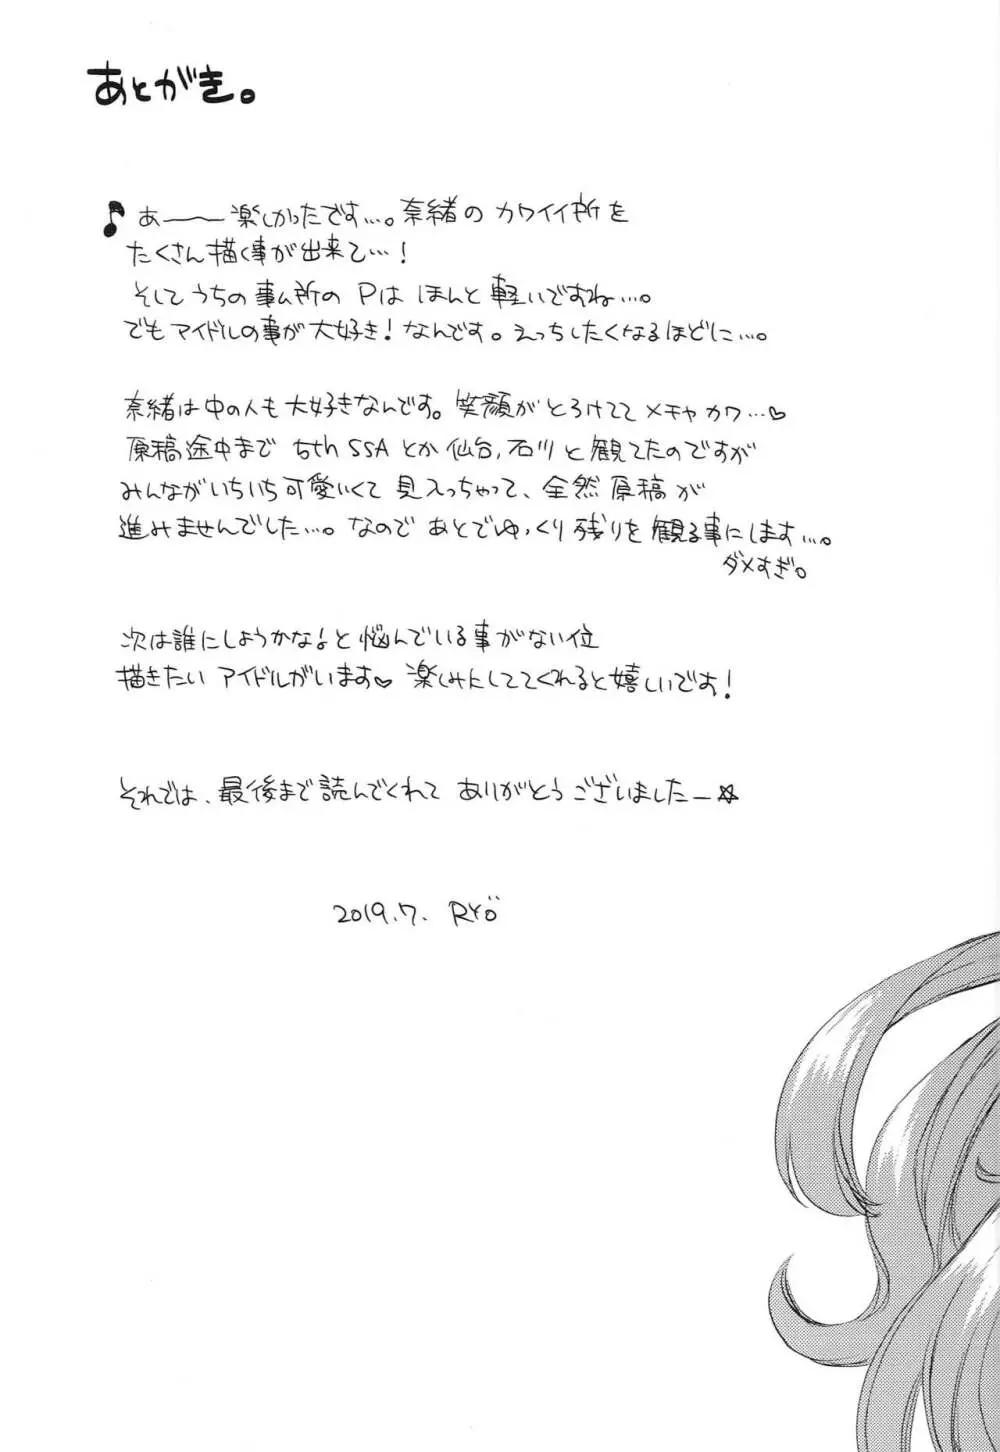 あとがき。
♪あー〜楽しかったです…。奈緒のカワイイ所を
たくさん描く事が出来て…!
そしてうちの事ム所のPはほんと軽いですね…。
でもアイドルの事が大好き!なんです。えっちしたくなるほどに…。
奈緒は中の人も大好きなんです。笑顔がとろけててメチャカワ…♡
原稿途中まで5th SSAとか仙台,石川と観てたのですが
みんながいちいち可愛いくて見えっちゃって、全然原稿が
進みませんでした…。なのであとでゆっくり残りを観る事にします…。
ダメすぎ。
次は誰にしようかな♪と悩んでいる事がない位
描きたいアイドルがいます♡楽しみにしててくれると嬉しいです!
それでは、最後まで読んでくれてありがとうございましたー☆
2019.7. RYÖ